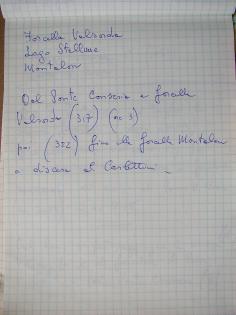 Forcella Valsorda
Lago Stellune
Montalon
Dal Ponte Conseria a forcella
Valsorda (317) (ore 3)
poi (322) fino alla forcella Montalon
e discesa al